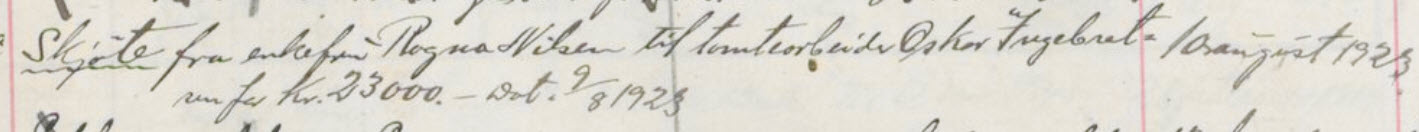 Skjöte fra enkefru Ragna Nilsen til tomtearbeider Oskar Ingebret- 10 august 1923
sen for Kr. 23000. - Dat. 9/8 1923